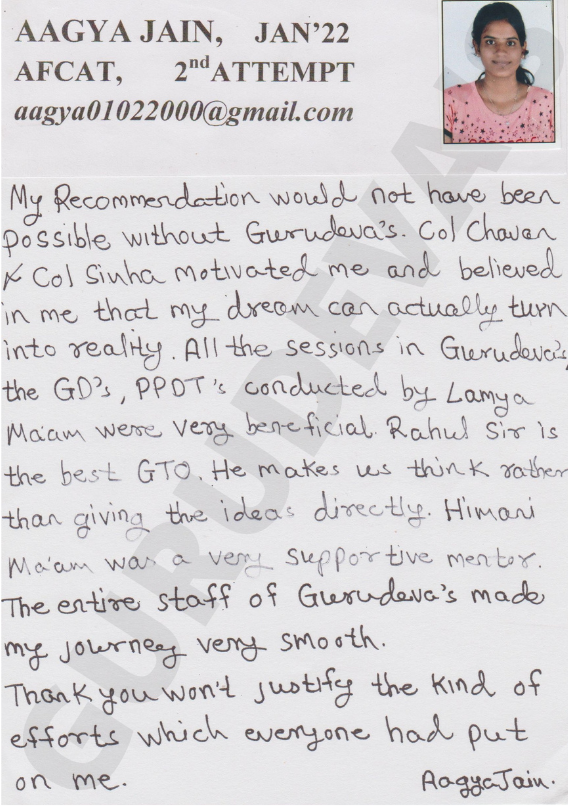 AAGYA JAIN, JAN'22
AFCAT, 2nd ATTEMPT
aagya01022000@gmail.com
My Recommendation would not have been
possible without Gurudeva's. Col Chavan
& Col Sinha motivated me and believed
in me that my dream can actually turn
into reality. All the sessions in Gurudeva's,
the GD's, PPDT's conducted by Lamya
Ma'am were very beneficial. Rahul Sir is
the best GTO. He makes us think rather
than giving the ideas directly. Himani
Ma'am was a very supportive mentor.
The entire staff of Gurudeva's made
my journey very smooth.
Thank you won't justify the kind of
efforts which everyone had put
on me. Aagya Jain.
GURUDEVA'S